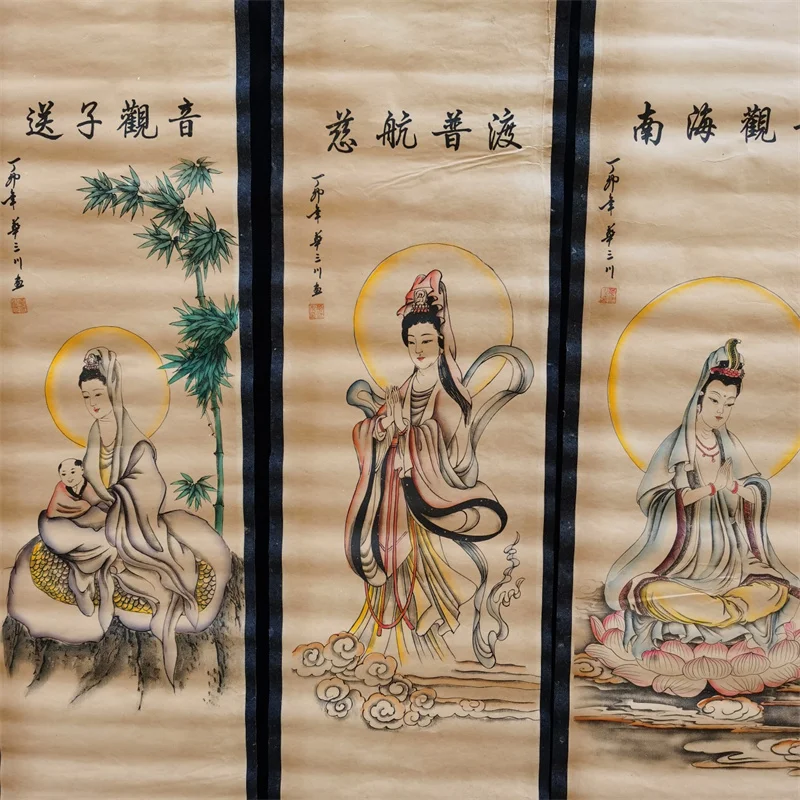 送子觀音
丁卯年華三川畫
慈航普渡
丁卯年華三川畫
南海觀
丁卯年華三川